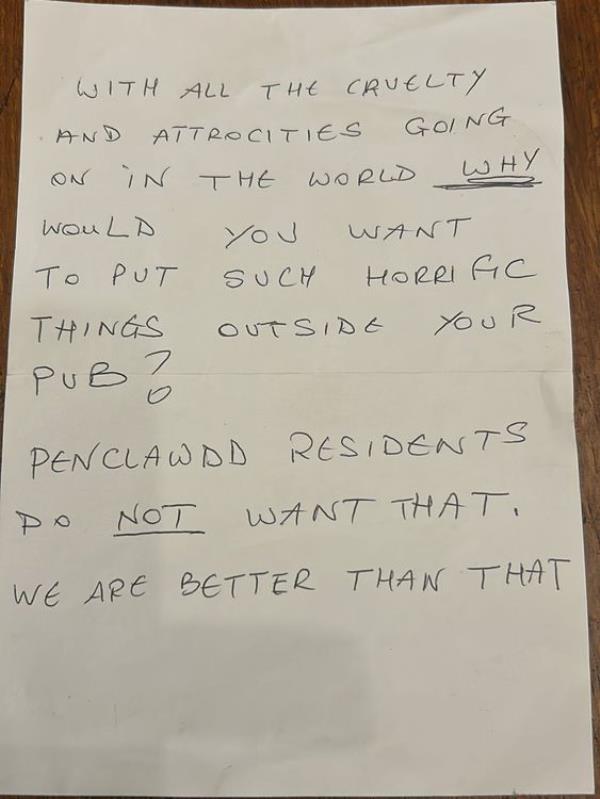 WITH ALL THE CRUELTY
AND ATTROCITIES GOING
ON IN THE WORLD WHY
WOULD YOU WANT
TO PUT SUCH HORRIFIC
THINGS OUTSIDE YOUR
PUB?
PENCLAWDD RESIDENTS
DO NOT WANT THAT.
WE ARE BETTER THAN THAT